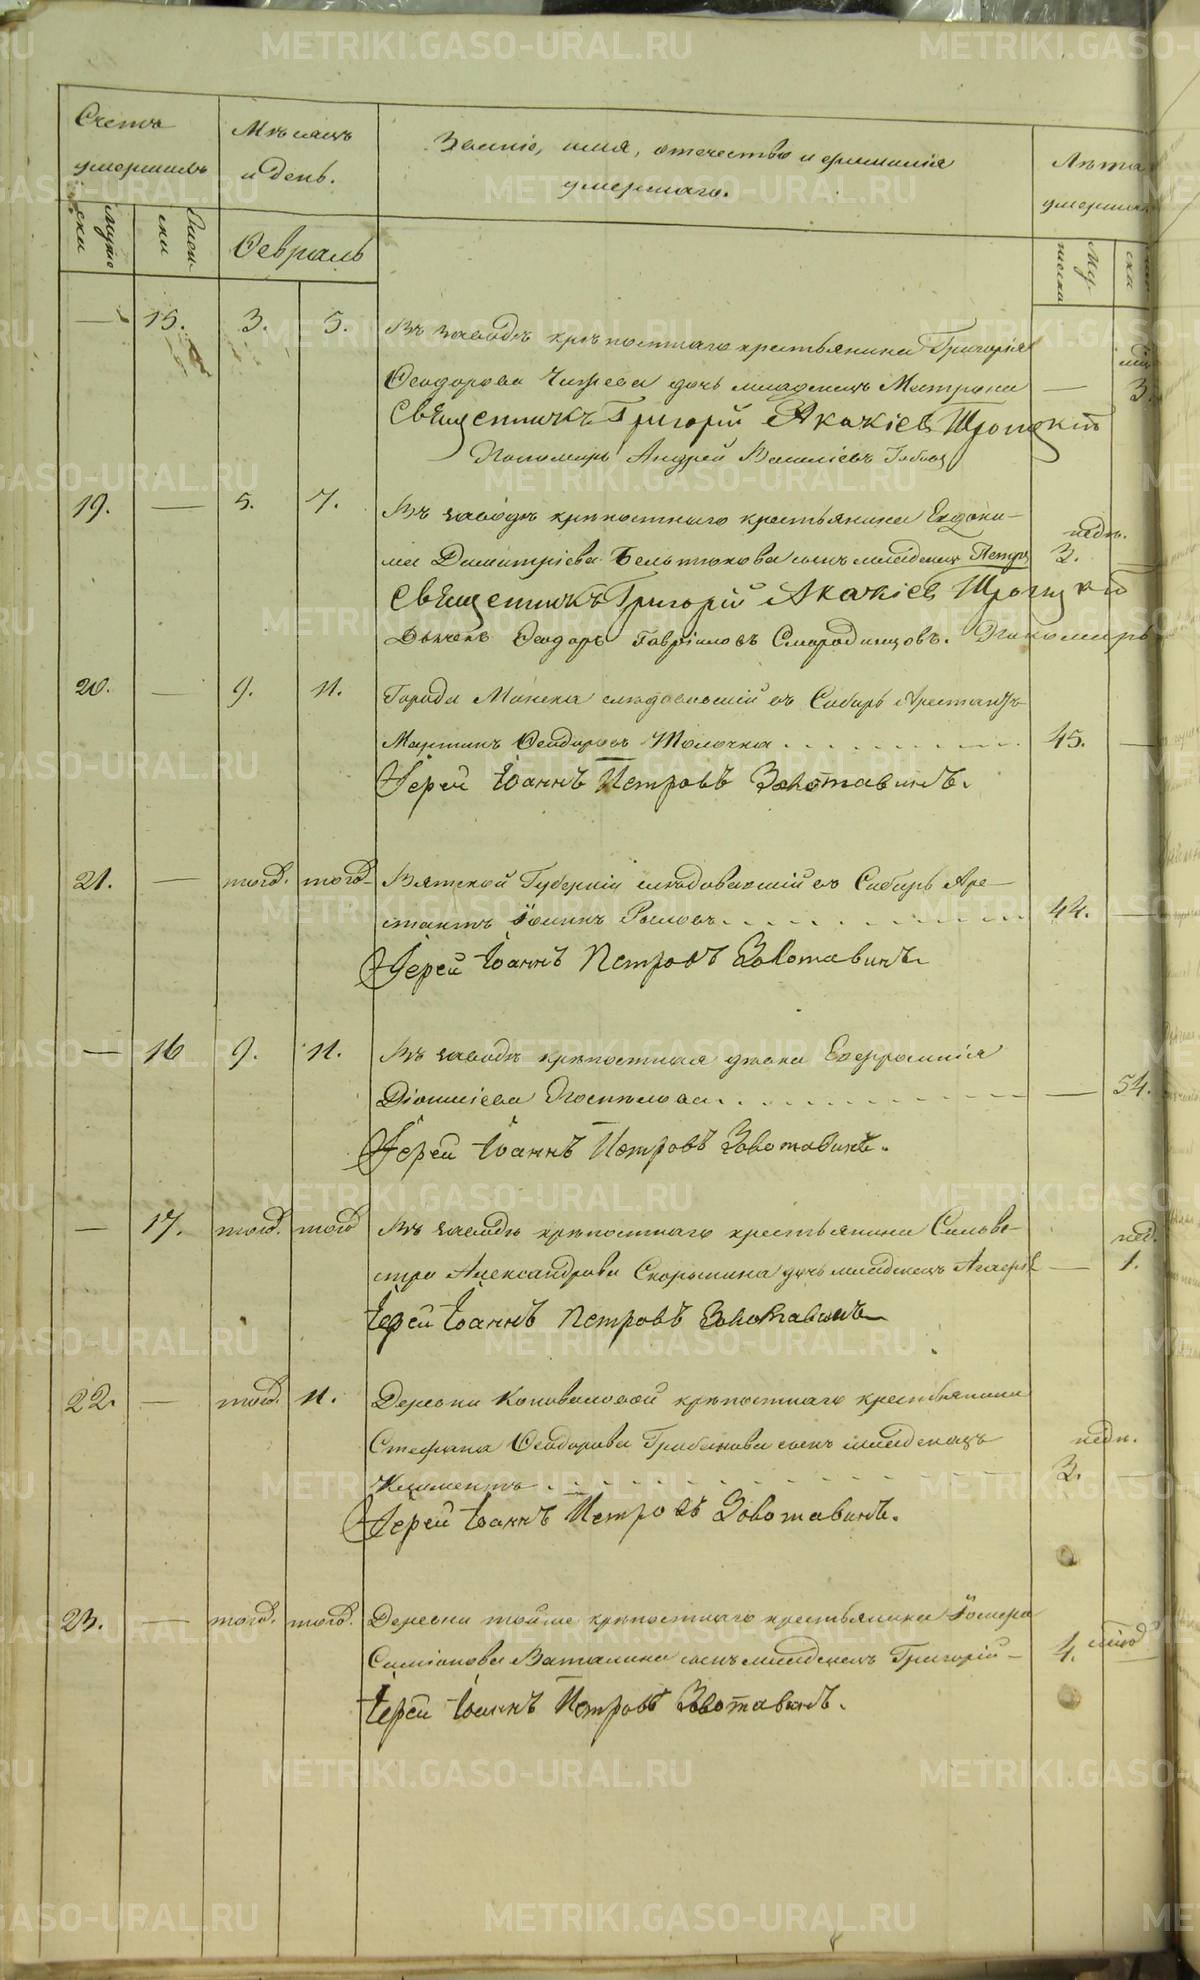 Счетъ умершихъ
Мѣсяцъ и день.
Званіе, имя, отечество и фамилія
умершаго.
Лѣта
Февраль
— 15. 3. 5. Въ заводѣ крѣпостнаго крестьянина Григорія
Ѳеодорова дочь младенецъ Матрона — 3.
Священникъ Григорій Акакіевъ Троицкій
Пономарь Андрей Василіевъ
19. — 5. 7. Въ заводѣ крѣпостнаго крестьянина Евдоки-
ма Димитріева Бельтюкова сынъ младенецъ Петръ недѣ. 3. —
Священникъ Григорій Акакіевъ Троицкій
Дьячекъ Ѳеодоръ Гавріиловъ Смородинцовъ. Пономарь
20. — 9. 11. Города Минска слѣдовавшій въ Сибирь Арестантъ
Мартинъ Ѳеодоровъ Толочка 45. —
Іерей Іоаннъ Петровъ Золотавинъ.
21. — тогд. тогд. Вятской Губерніи слѣдовавшій въ Сибирь Аре-
стантъ 44. —
Іерей Іоаннъ Петровъ Золотавинъ.
— 16 9. 11. Въ заводѣ крѣпостная Евфросинія
Діонисіева Поспѣлова — 54.
Іерей Іоаннъ Петровъ Золотавинъ.
— 17. тогд. тогд Въ заводѣ крѣпостнаго крестьянина Сильве-
стра Александрова Скорынина дочь младенецъ — нед. 1.
Іерей Іоаннъ Петровъ Золотавинъ
22. — тогд. 11. Деревни Коноваловой крѣпостнаго крестьянина
Стефана Ѳеодорова сынъ младенецъ
Климентъ недѣ. 3. —
Іерей Іоаннъ Петровъ Золотавинъ.
23. — тогд. тогд. Деревни тойже крѣпостнаго крестьянина
Симіонова Ваталина сынъ младенецъ Григорій — 4.
Іерей Іоаннъ Петровъ Золотавинъ.
METRIKI.GASO-URAL.RU